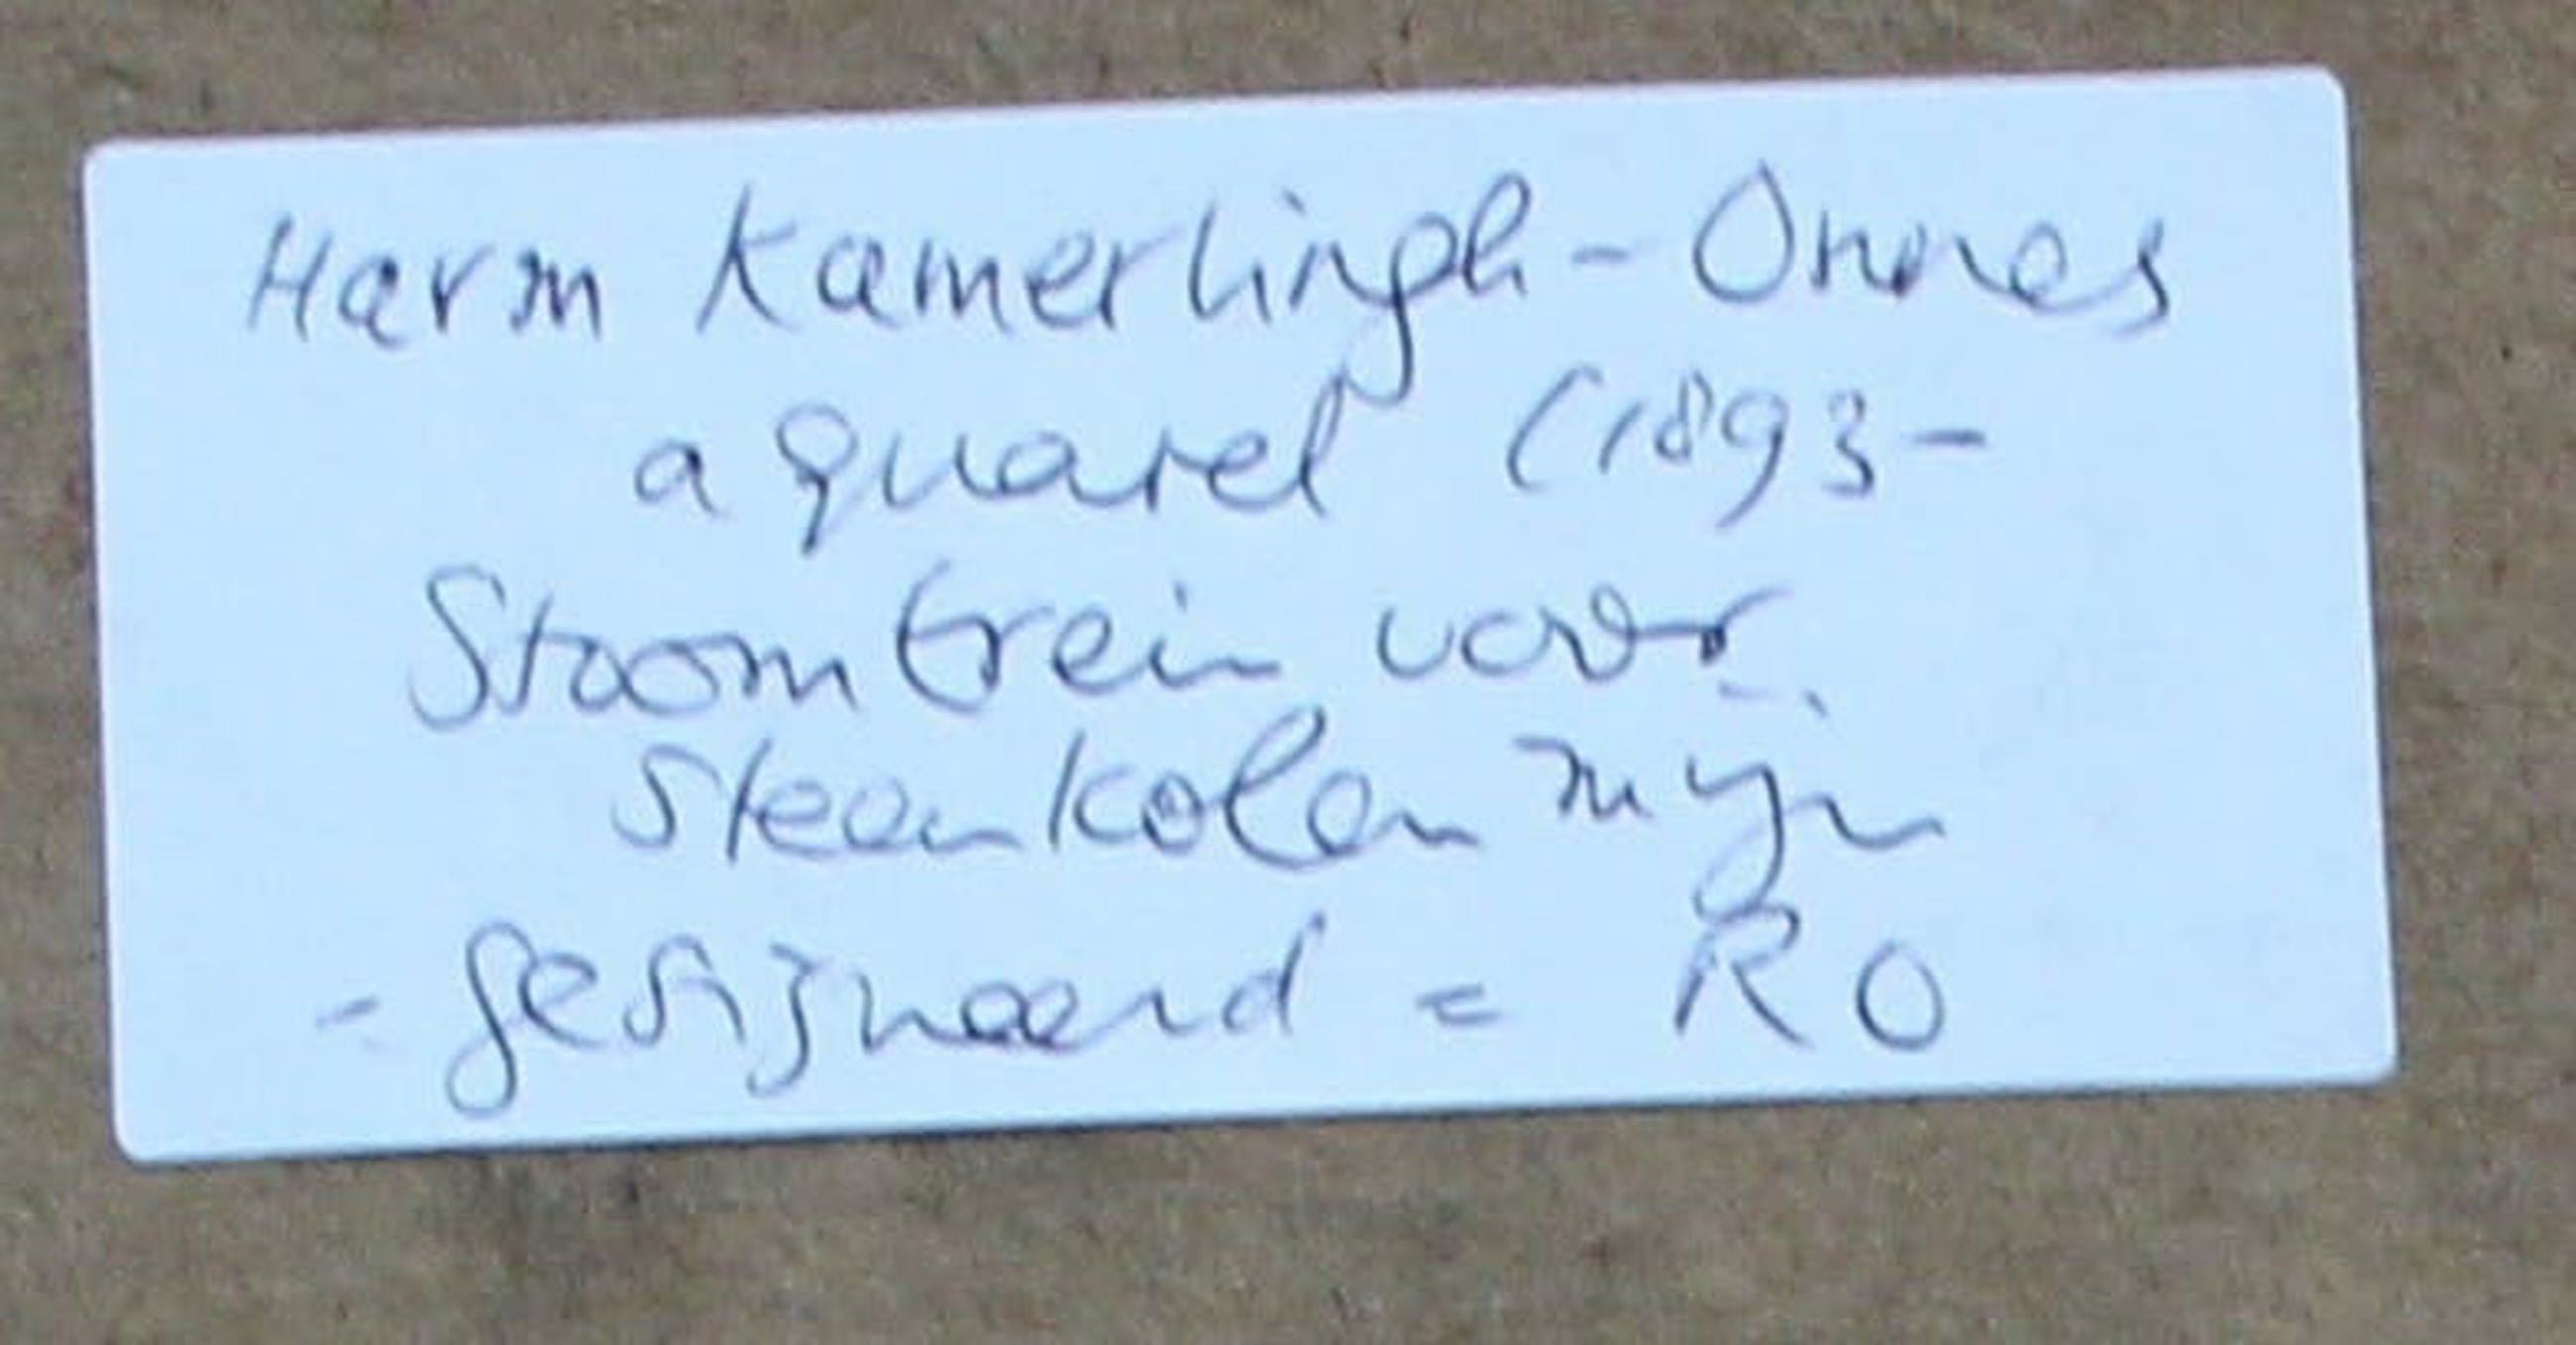 Harm Kamerlingh-Onnes
aquarel (1893-
Stoomtrein voor
steenkolen mijn
- gesigneerd = RO